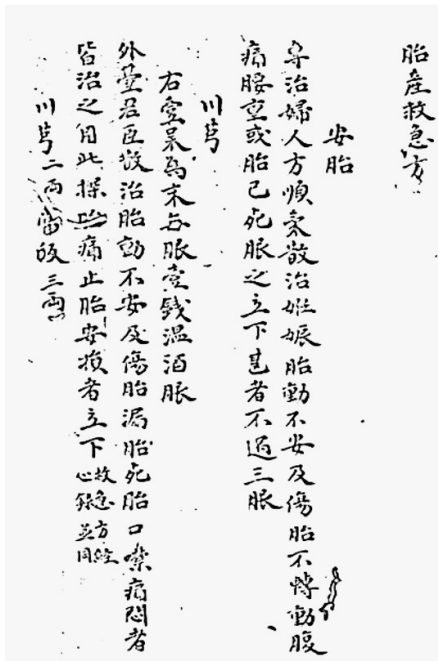 胎產救急方
安胎
專治婦人方順氣散治姙娠胎動不安及傷胎不轉動腹
痛腰重或胎已死服之立下甚者不過三服
川芎
右壹味為末每服壹錢溫酒服
外臺君臣散治胎動不安及傷胎漏胎死胎口噤痛悶者
皆治之用此探胎痛止胎安損者立下救急方經心錄並同
川芎二兩當皈三兩